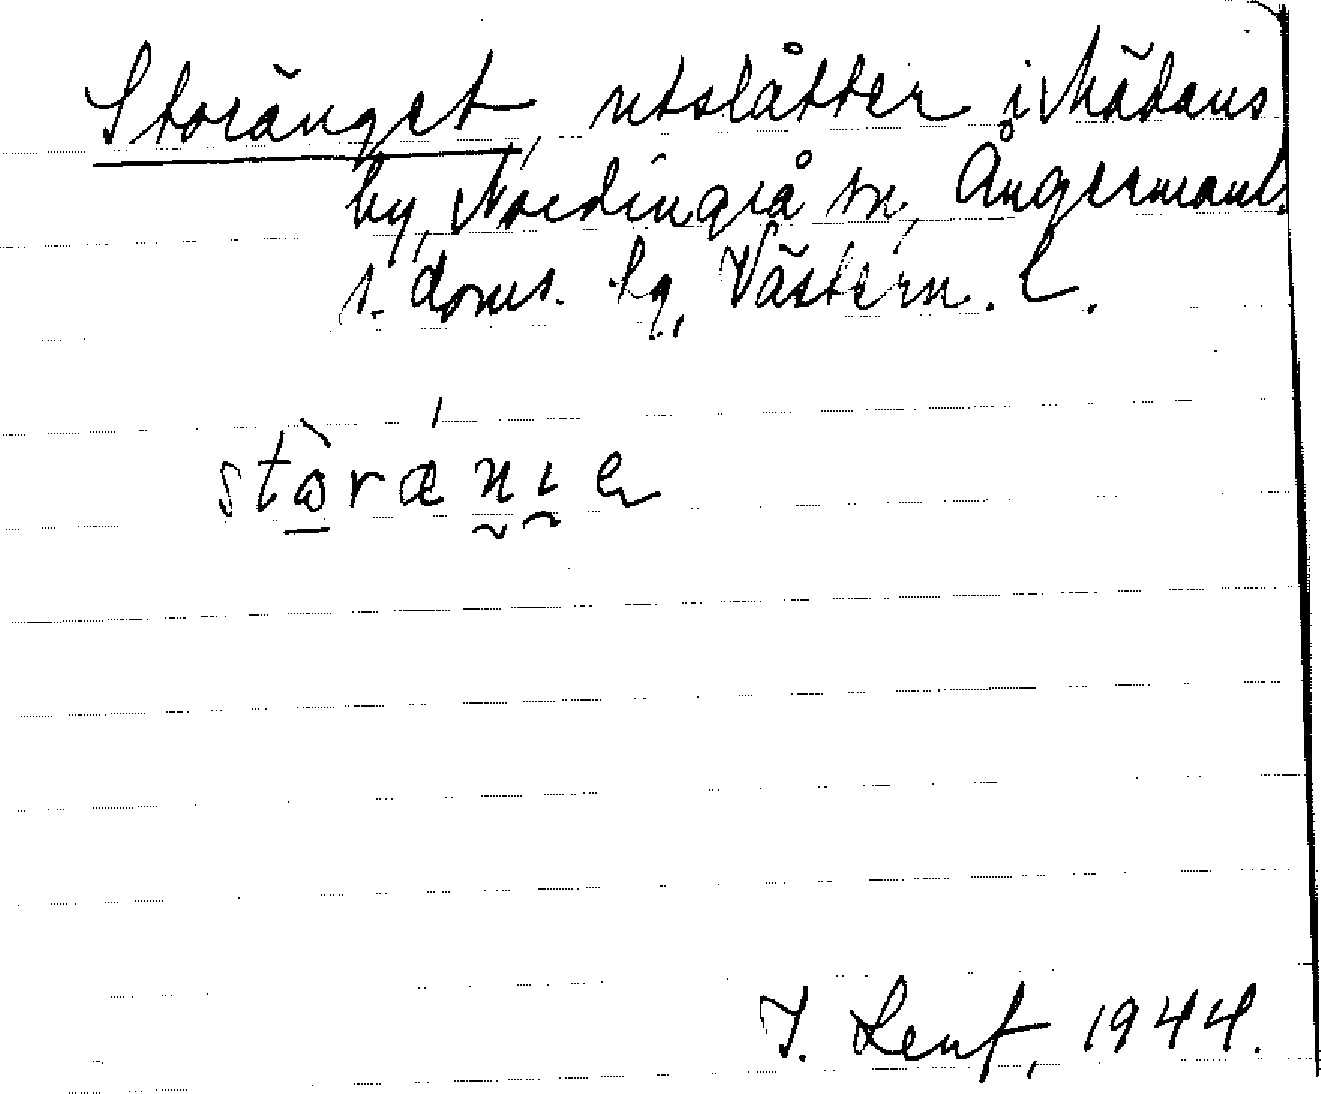 Storänget, utslåtter i Mädans
by, Nordingrå sn, Ångermanl.
s. doms. hg, Västern. l.
J. Lenf, 1944.